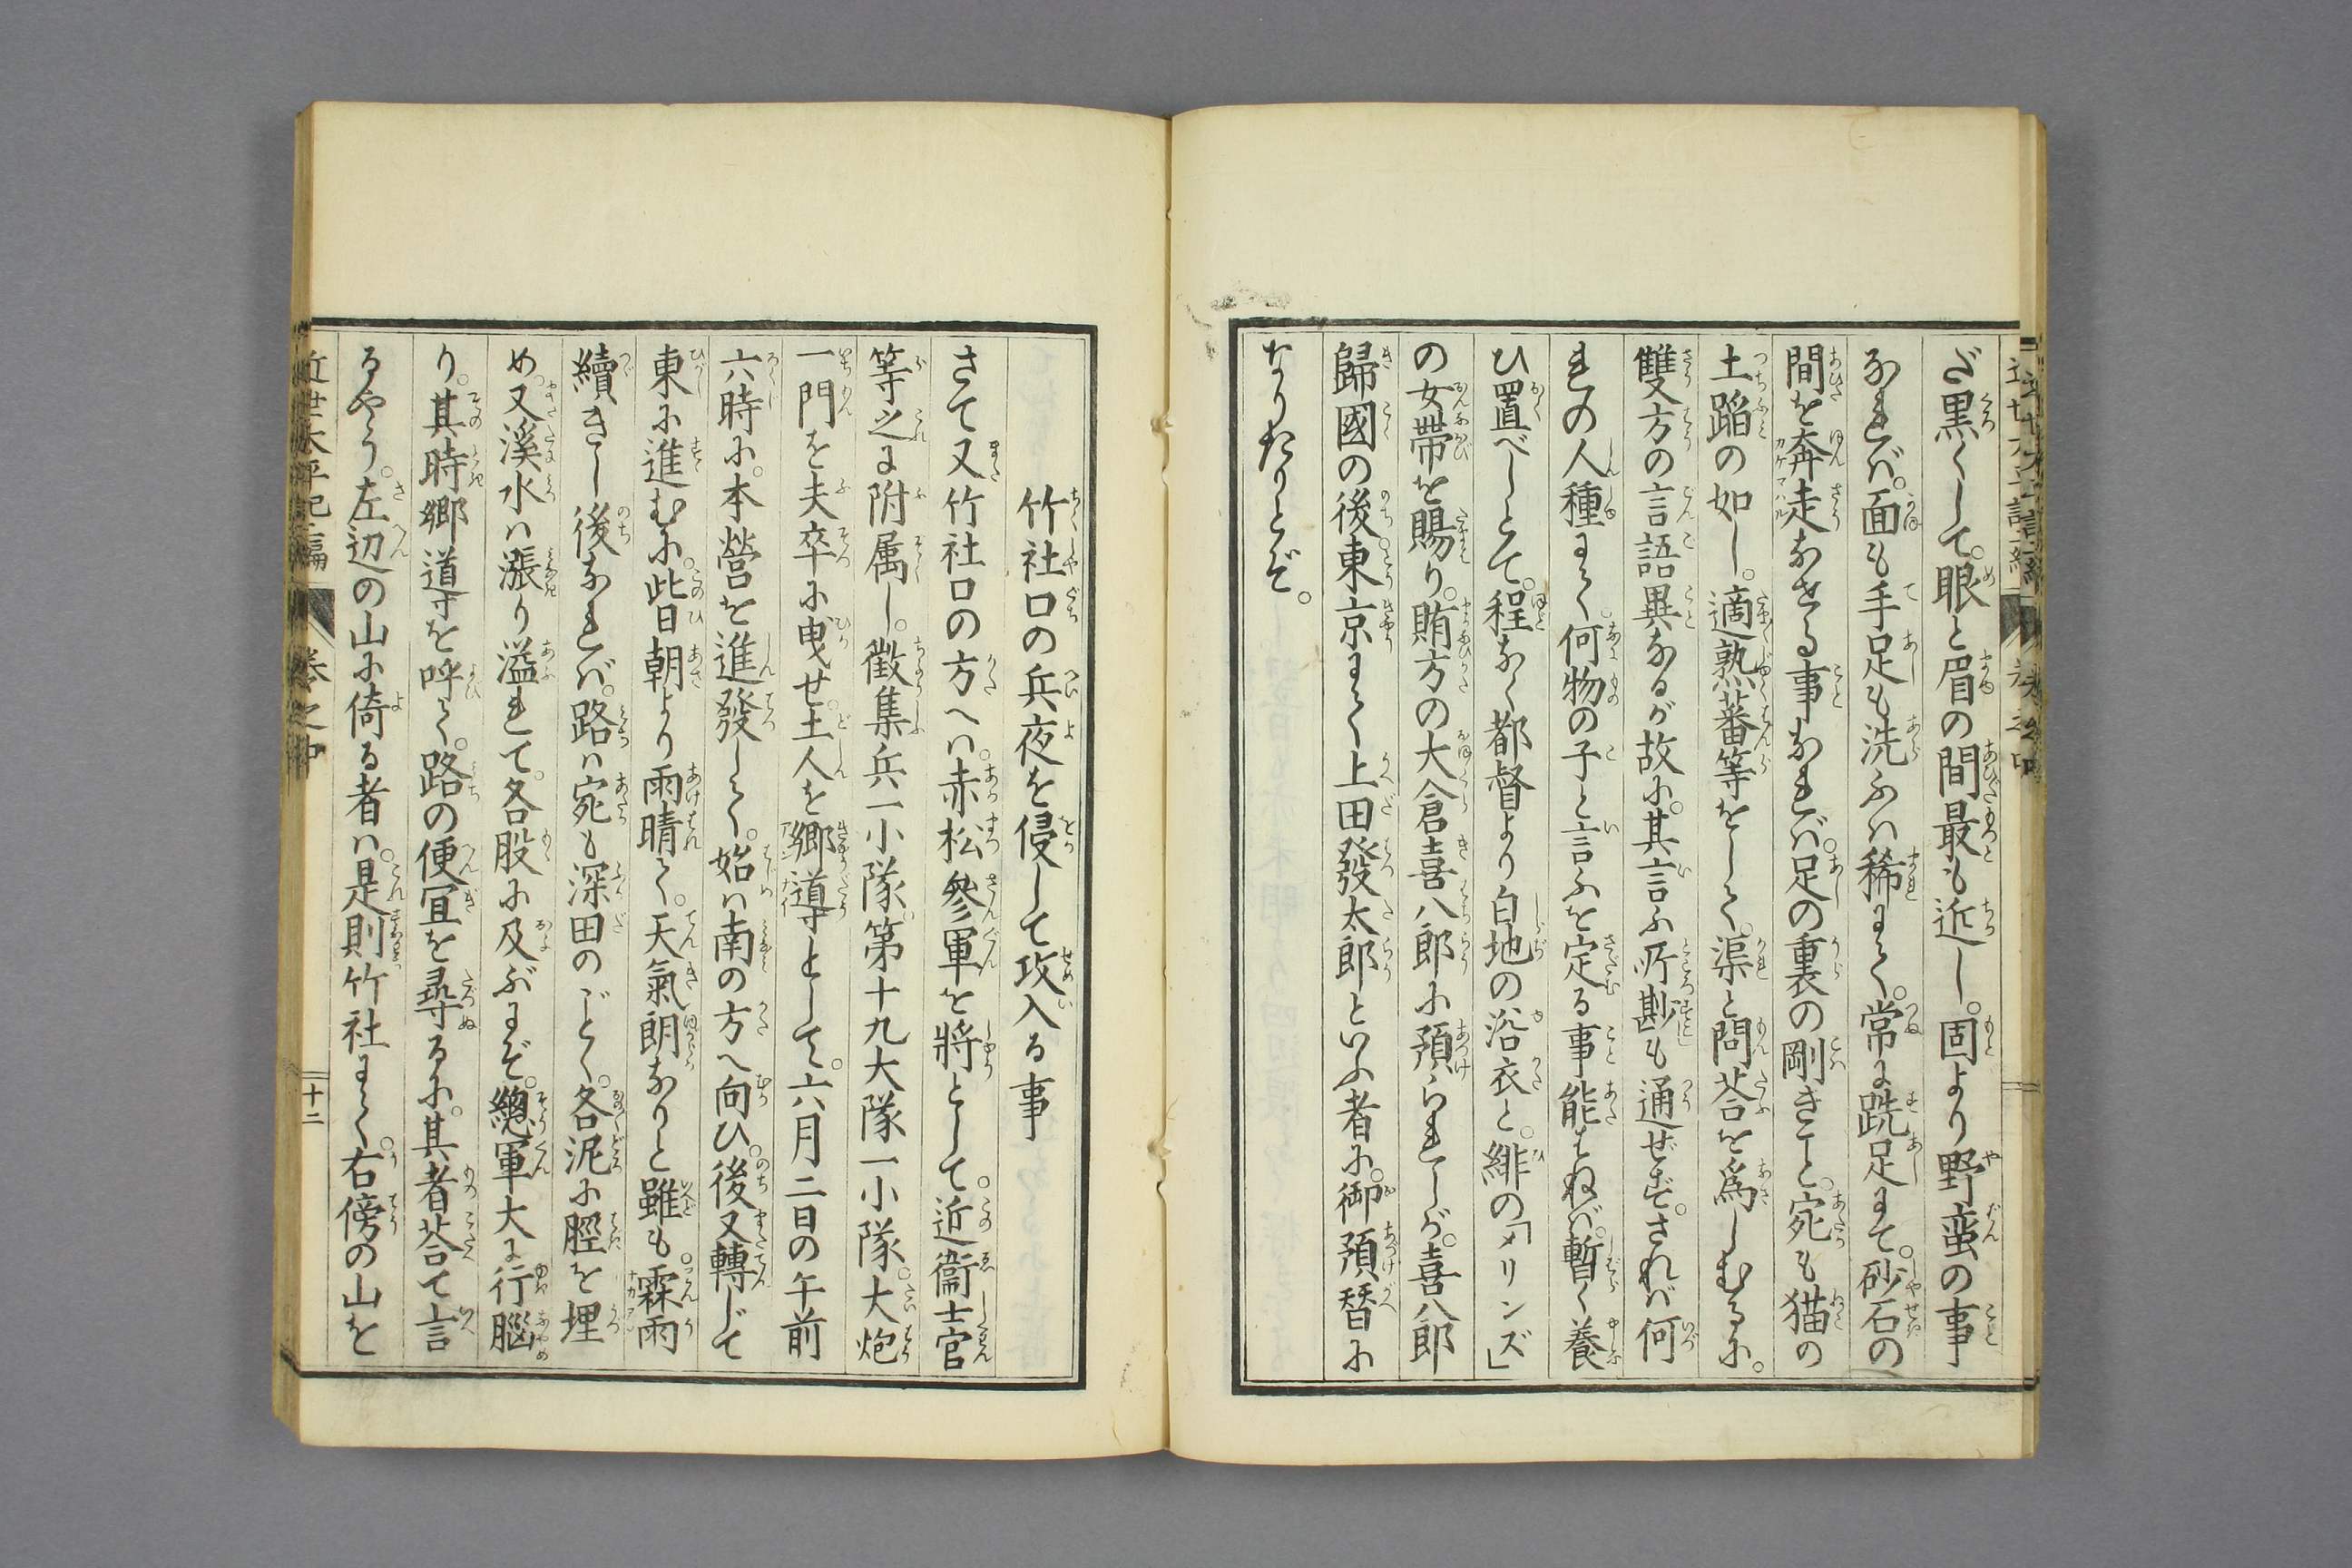 ざ黒くして。眼と眉の間最も近し。固より野蛮の事
なれバ。面も手足も洗ふハ稀にて。常に跣足にて。砂石の
間を奔走なせる事なれバ。足の裏の剛きこと。宛も猫の
土蹈の如し。適熟蕃等をして。渠と問荅を為しむるに。
雙方の言語異なるが故に。其言ふ所尠も通ぜず。されバ何
れの人種にて。何物の子と言ふを定る事能はねバ。暫く養
ひ置べしとて。程なく都督より白地の浴衣と。緋の「メリンズ」
の女帶を賜り。賄方の大倉喜八郎に預られしが。喜八郎
歸國の後東京にて上田發太郎といふ者に。御預替に
なりたりとぞ。
竹社口の兵夜を侵して攻入る事
さて又竹社口の方へハ。赤松參軍を將として。近衞士官
等之に附属し。徵集兵一小隊第十九大隊一小隊。大炮
一門を夫卒に曳せ。土人を鄉導として。六月二日の午前
六時に。本營を進發して。始ハ南の方へ向ひ。後又轉じて
東に進むに。此日朝より雨晴て。天氣朗なりと雖も。霖雨
續きし後なれバ。路ハ宛も深田のごとく。各泥に脛を埋
め。又溪水ハ漲り溢れて。各股に及ぶにぞ。總軍大に行腦
り。其時鄉導を呼て。路の便冝を尋るに。其者荅て言
るやう。左辺の山に倚る者ハ。是則竹社にて。右傍の山を
近世太平記二編 卷之中 十二